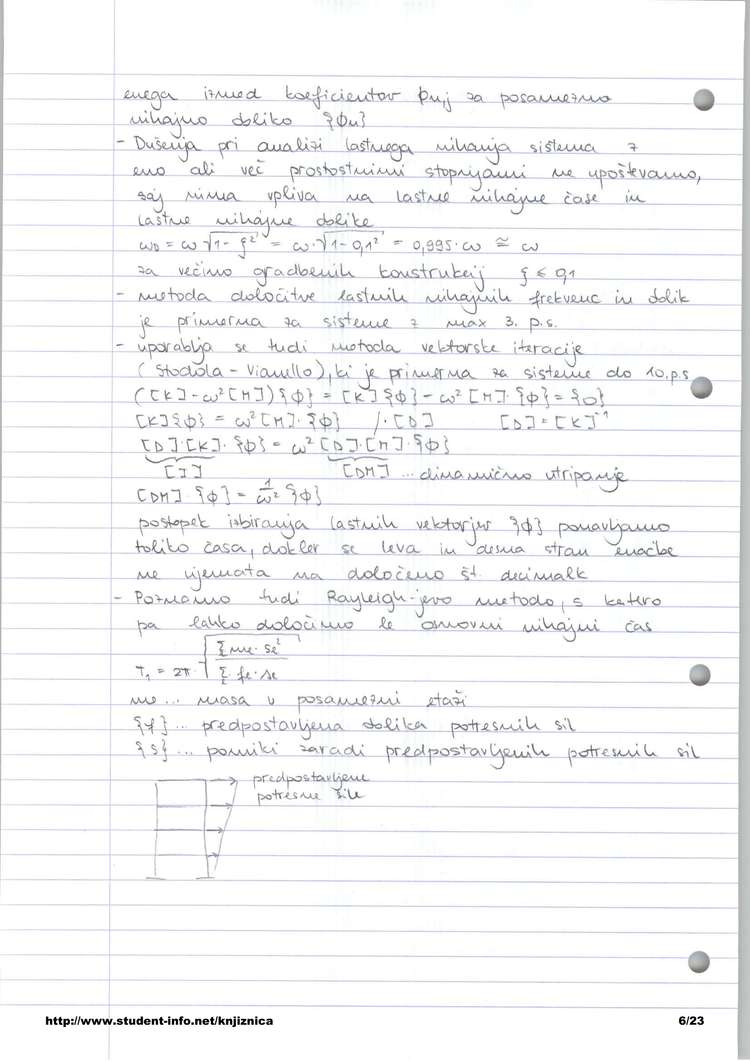 enega izmed koeficientov Φnj za posamezno
nihajno obliko {Φn}
- Dušenja pri analizi lastnega nihanja sistema z
eno ali več prostostnimi stopnjami ne upoštevamo,
saj nima vpliva na lastne nihajne čase in
lastne nihajne oblike
ωD = ω√1-ξ² = ω·√1-0,1² = 0,995·ω ≅ ω
za večino gradbenih konstrukcij ξ ≤ 0,1
- metoda določitve lastnih nihajnih frekvenc in oblik
je primerna za sisteme z max 3. p.s.
- uporablja se tudi metoda vektorske iteracije
(Stodola - Vianello), ki je primerna za sisteme do 10.p.s
([K]-ω²[M]){Φ} = [K]{Φ} - ω²[M]·{Φ} = {0}
[K]{Φ} = ω²[M]·{Φ} /·[D] [D]=[K]⁻¹
[D]·[K]·{Φ} = ω²[D]·[M]·{Φ}
[I] [DM] ... dinamično utripanje
[DM]·{Φ} = 1/ω² {Φ}
postopek izbiranja lastnih vektorjev {Φ} ponavljamo
toliko časa, dokler se leva in desna stran enačbe
ne ujemata na določeno št. decimalk
- Poznamo tudi Rayleigh-jevo metodo, s katero
pa lahko določimo le osnovni nihajni čas
T₁ = 2π·√Σ me·se² / Σ fe·se
me ... masa v posamezni etaži
{f} ... predpostavljena oblika potresnih sil
{s} ... pomiki zaradi predpostavljenih potresnih sil
predpostavljene
potresne sile
http://www.student-info.net/knjiznica 6/23